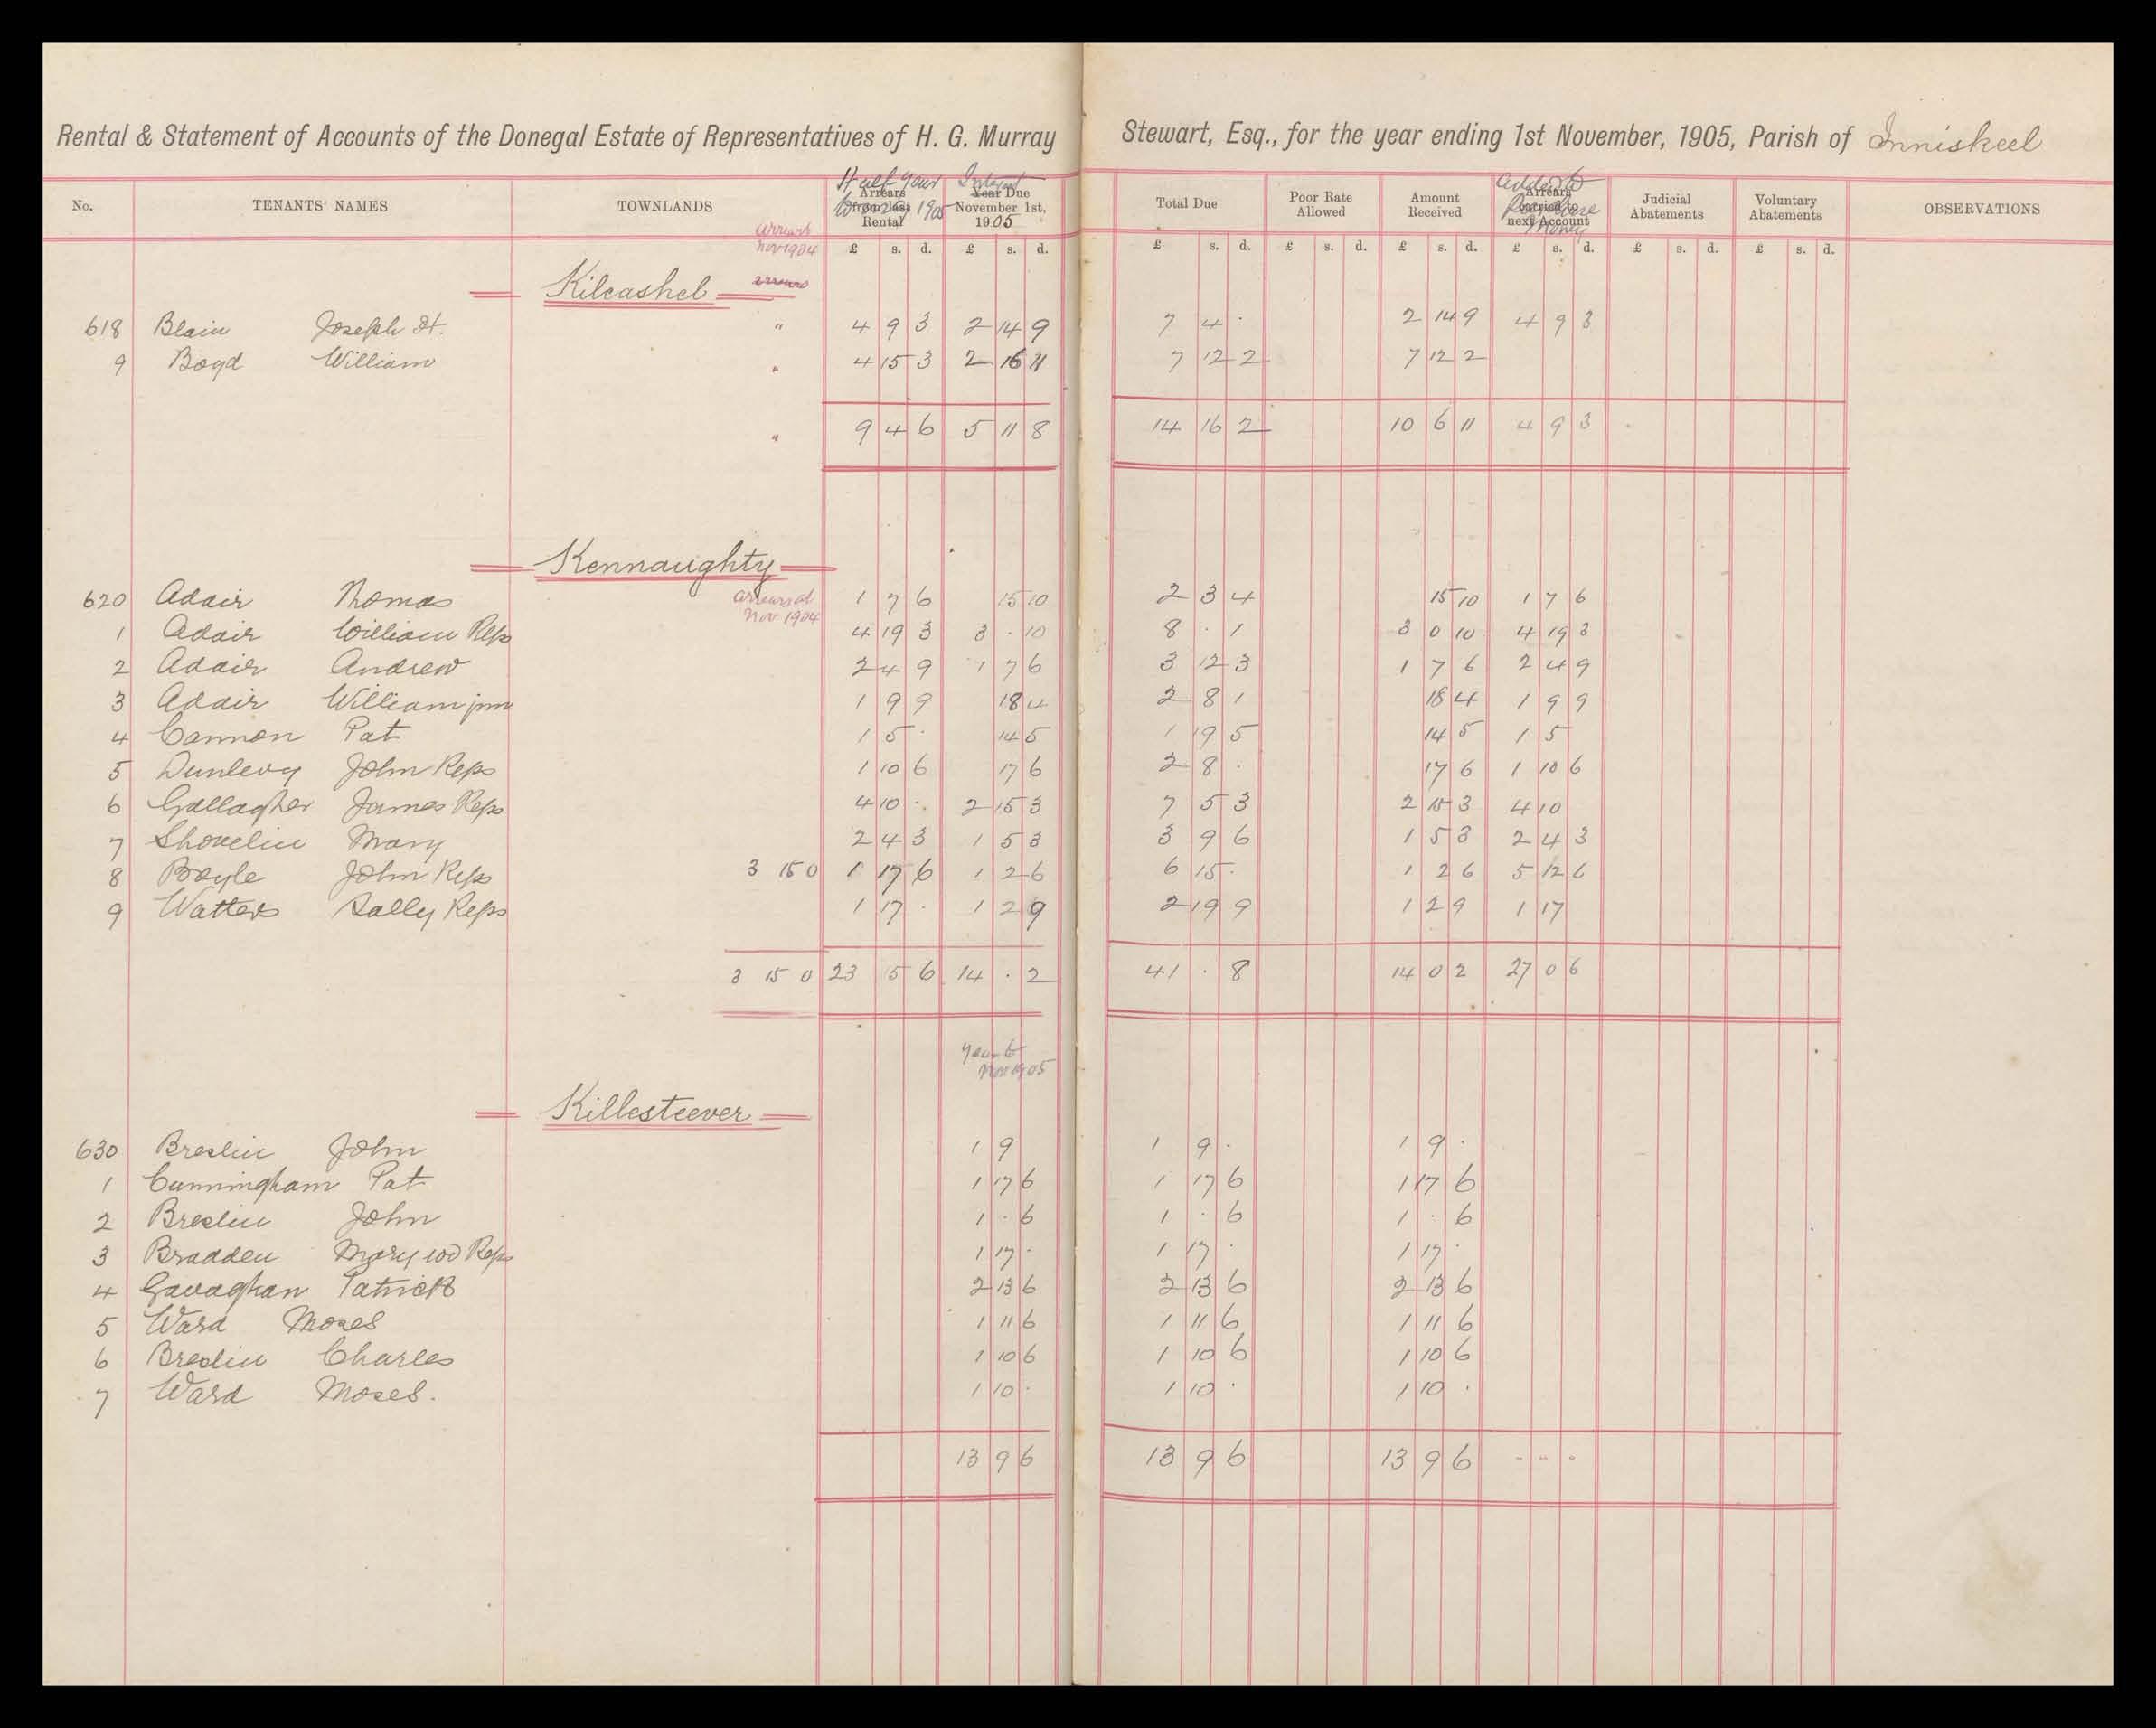 Rental & Statement of Accounts of the Donegal Estate of Representatives of H. G. Murray Stewart, Esq., for the year ending 1st November, 1905, Parish of Inniskeel
No. TENANTS' NAMES TOWNLANDS Arrears from last Rental Half year 1905 Year Due November 1st, 1905 Interest Total Due Poor Rate Allowed Amount Received Arrears carried to next Account Added to Purchase Money Judicial Abatements Voluntary Abatements OBSERVATIONS
arrears Nov 1904
£ s. d. £ s. d. £ s. d. £ s. d. £ s. d. £ s. d. £ s. d. £ s. d.
Kilcashel arrears
618 Blain Joseph H. " 4 9 3 2 14 9 7 4 · 2 14 9 4 9 3
9 Boyd William " 4 15 3 2 16 11 7 12 2 7 12 2
" 9 4 6 5 11 8 14 16 2 10 6 11 4 9 3
Kennaughty
arrears at Nov 1904
620 Adair Thomas 1 7 6 15 10 2 3 4 15 10 1 7 6
1 Adair William Reps 4 19 3 3 · 10 8 · 1 3 0 10 4 19 3
2 Adair Andrew 2 4 9 1 7 6 3 12 3 1 7 6 2 4 9
3 Adair William jnr 1 9 9 18 4 2 8 1 18 4 1 9 9
4 Cannon Pat 1 5 · 14 5 1 19 5 14 5 1 5
5 Dunlevy John Reps 1 10 6 17 6 2 8 · 17 6 1 10 6
6 Gallagher James Reps 4 10 · 2 15 3 7 5 3 2 15 3 4 10
7 Shovelin Mary 2 4 3 1 5 3 3 9 6 1 5 3 2 4 3
8 Boyle John Reps 3 15 0 1 17 6 1 2 6 6 15 · 1 2 6 5 12 6
9 Watters Sally Reps 1 17 · 1 2 9 2 19 9 1 2 9 1 17
3 15 0 23 5 6 14 · 2 41 · 8 14 0 2 27 0 6
year to Nov 1905
Killesteever
630 Breslin John 1 9 1 9 · 1 9 ·
1 Cunningham Pat 1 17 6 1 17 6 1 17 6
2 Breslin John 1 · 6 1 · 6 1 · 6
3 Bradden Mary wd Reps 1 17 · 1 17 · 1 17 ·
4 Gavaghan Patrick 2 13 6 2 13 6 2 13 6
5 Ward Moses 1 11 6 1 11 6 1 11 6
6 Breslin Charles 1 10 6 1 10 6 1 10 6
7 Ward Moses. 1 10 · 1 10 · 1 10 ·
13 9 6 13 9 6 13 9 6 - - -